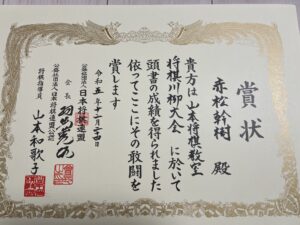 賞状
赤松幹樹 殿
貴方は山本将棋教室
将棋川柳大会 に於いて
頭書の成績を得られました
依ってここにその敢闘を
賞します
令和五年十二月二十四日
公益社団法人日本将棋連盟
会長
公益社団法人日本将棋連盟公認
将棋指導員 山本和歌子